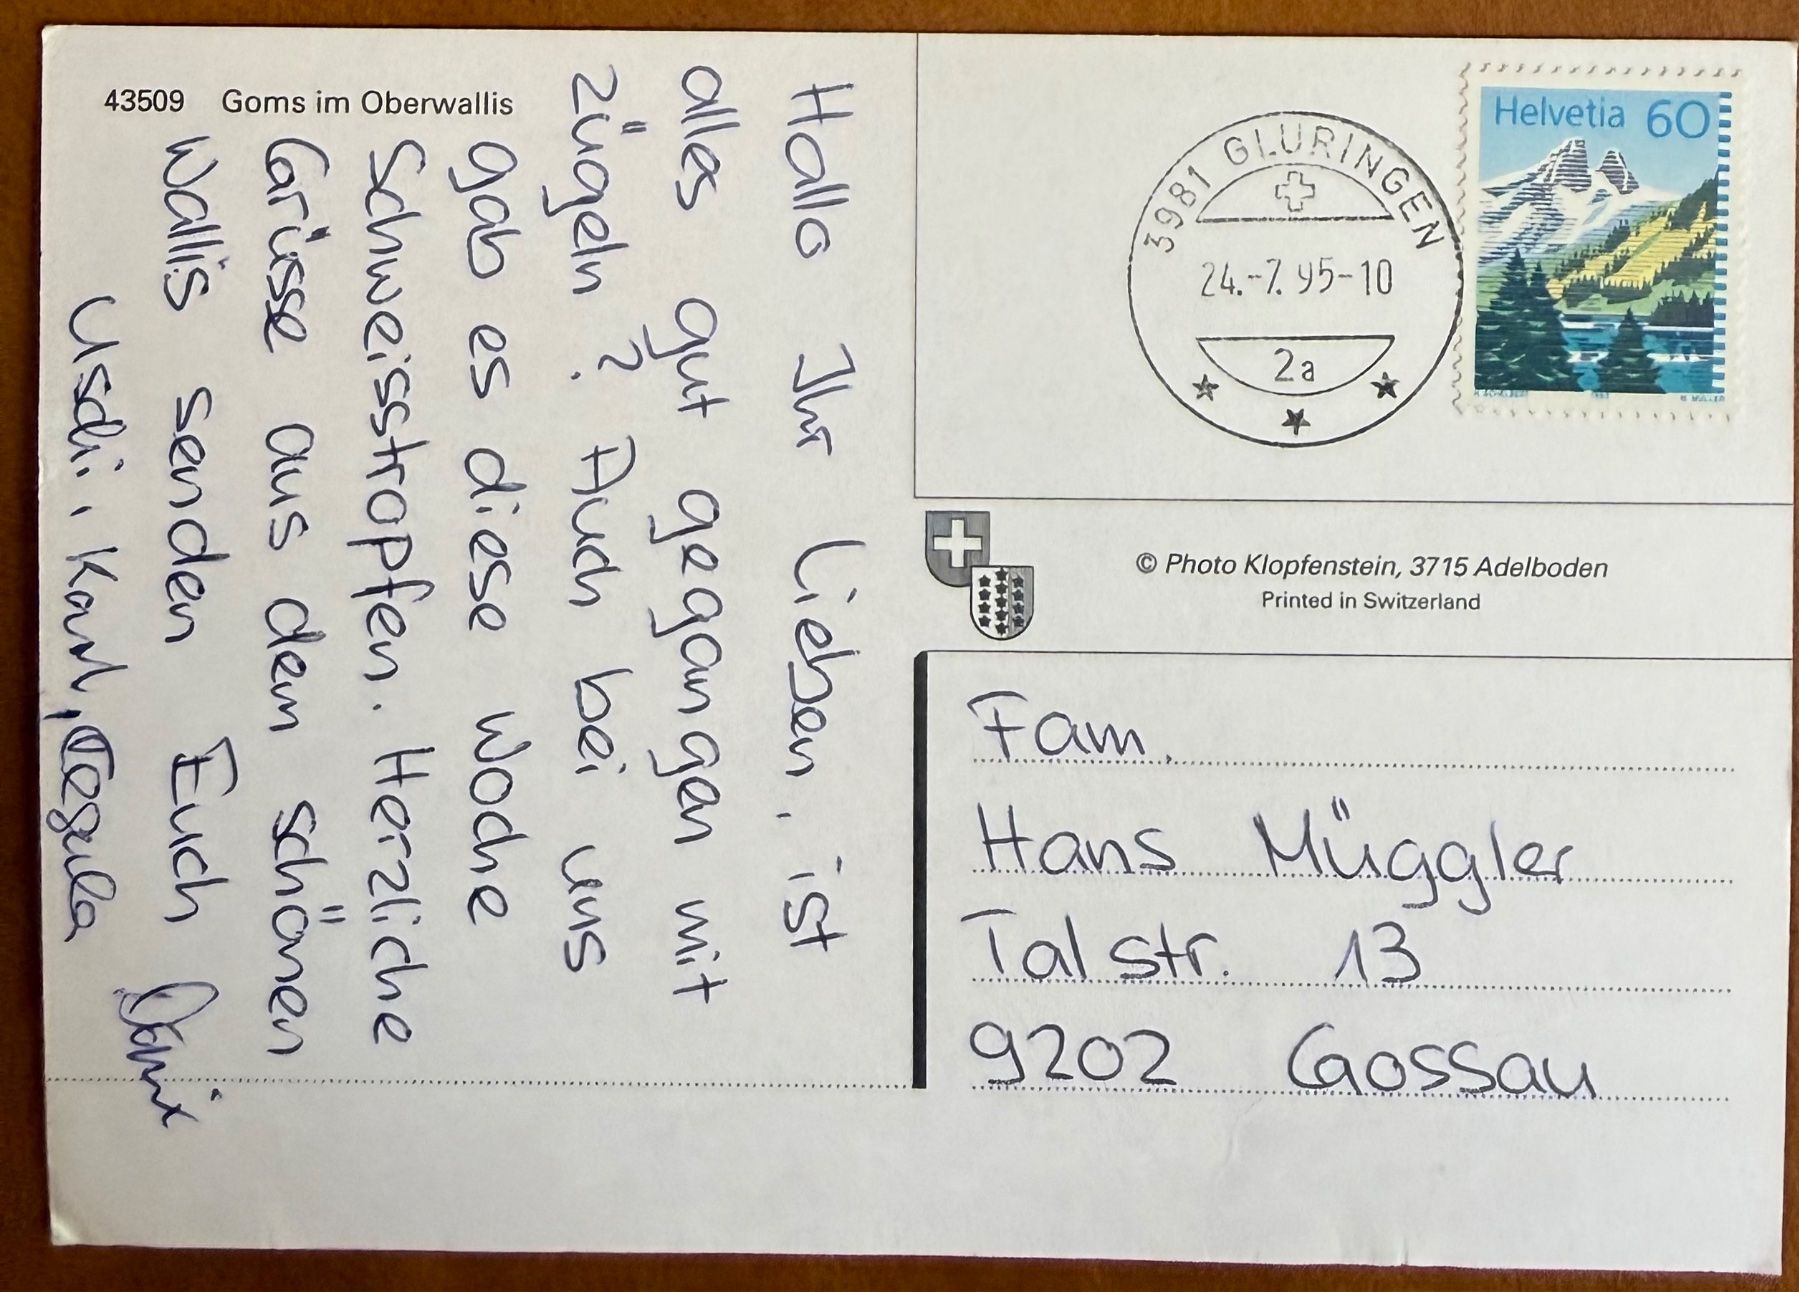 43509 Goms im Oberwallis
Hallo Ihr Lieben, ist
alles gut gegangen mit
zügeln? Auch bei uns
gab es diese Woche
Schweisstropfen. Herzliche
Grüsse aus dem schönen
Wallis senden Euch
Uschi, Karl, Regula
Dani
3981 GLURINGEN
24.-7.95-10
2a
Helvetia 60
© Photo Klopfenstein, 3715 Adelboden
Printed in Switzerland
Fam.
Hans Müggler
Talstr. 13
9202 Gossau